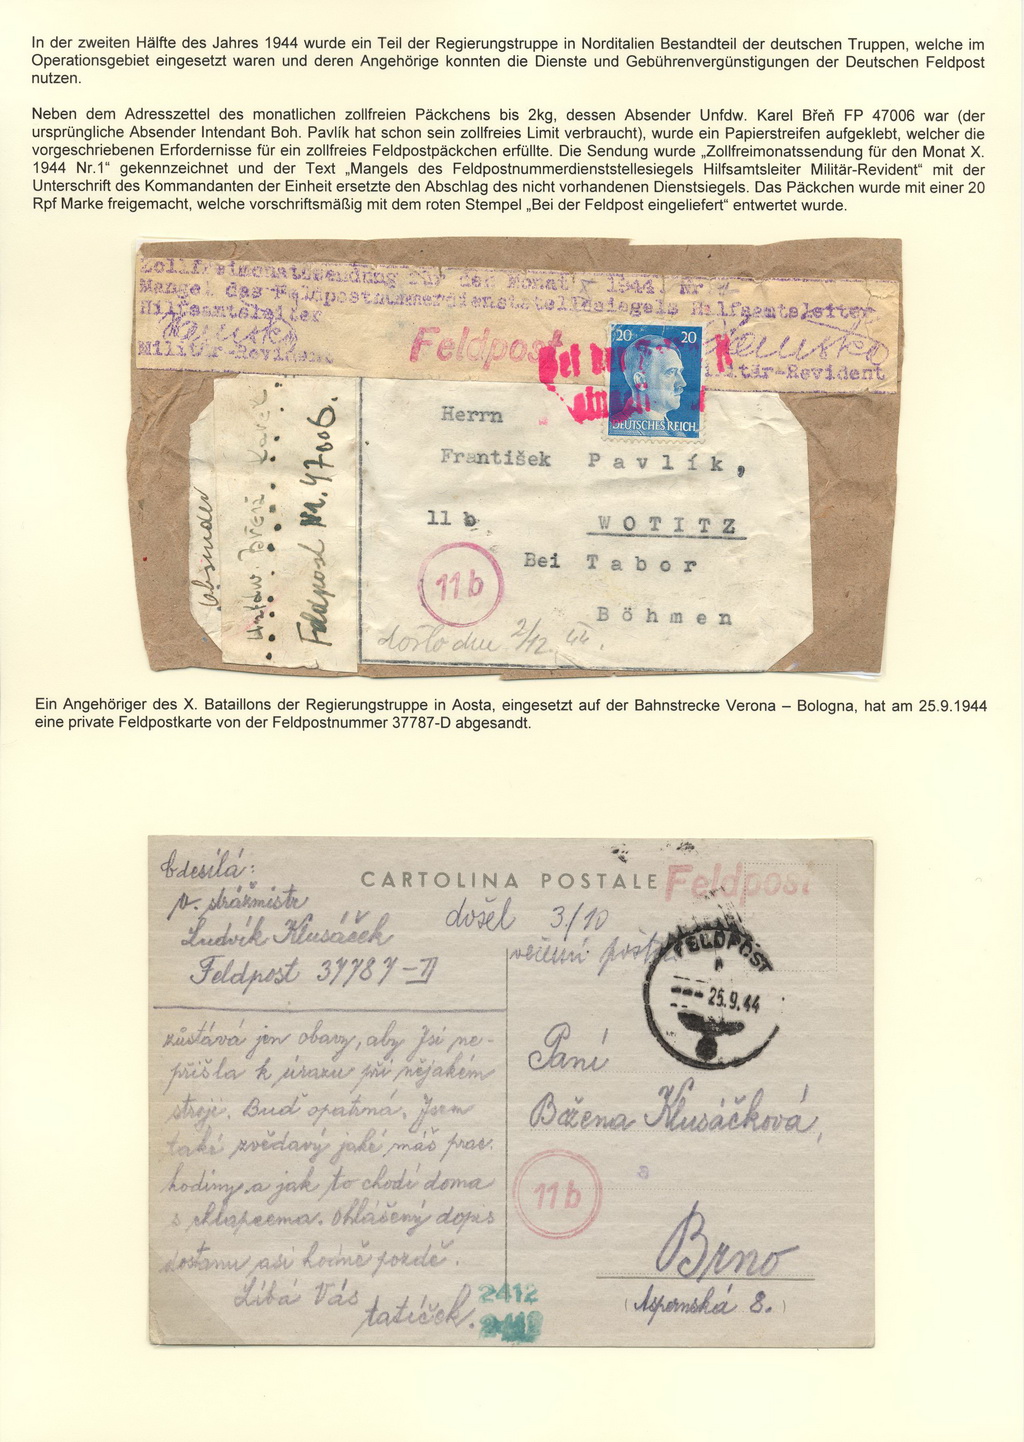 In der zweiten Hälfte des Jahres 1944 wurde ein Teil der Regierungstruppe in Norditalien Bestandteil der deutschen Truppen, welche im
Operationsgebiet eingesetzt waren und deren Angehörige konnten die Dienste und Gebührenvergünstigungen der Deutschen Feldpost
nutzen.
Neben dem Adresszettel des monatlichen zollfreien Päckchens bis 2kg, dessen Absender Unfdw. Karel Břeň FP 47006 war (der
ursprüngliche Absender Intendant Boh. Pavlík hat schon sein zollfreies Limit verbraucht), wurde ein Papierstreifen aufgeklebt, welcher die
vorgeschriebenen Erfordernisse für ein zollfreies Feldpostpäckchen erfüllte. Die Sendung wurde „Zollfreimonatssendung für den Monat X.
1944 Nr.1“ gekennzeichnet und der Text „Mangels des Feldpostnummerdienststellesiegels Hilfsamtsleiter Militär-Revident“ mit der
Unterschrift des Kommandanten der Einheit ersetzte den Abschlag des nicht vorhandenen Dienstsiegels. Das Päckchen wurde mit einer 20
Rpf Marke freigemacht, welche vorschriftsmäßig mit dem roten Stempel „Bei der Feldpost eingeliefert“ entwertet wurde.
Zollfreimonatssendung für den Monat X 1944 Nr
Mangel des Feldpostnummerdienststellesiegels Hilfsamtsleiter
Hilfsamtsleiter
Militär-Revident
Feldpost
20 20
DEUTSCHES REICH
Militär-Revident
Absender
Unfdw. Břeň Karel
Feldpost Nr. 47006.
Herrn
František Pavlík,
11b WOTITZ
Bei Tabor
11b
Böhmen
došlo dne 2/12. 44.
Ein Angehöriger des X. Bataillons der Regierungstruppe in Aosta, eingesetzt auf der Bahnstrecke Verona – Bologna, hat am 25.9.1944
eine private Feldpostkarte von der Feldpostnummer 37787-D abgesandt.
Odesílá:
v. strážmistr
Ludvík Klusáček
Feldpost 37787-D
CARTOLINA POSTALE
Feldpost
došel 3/10
večerní poštou
FELDPOST
25.9.44
zůstává jen obavy, aby Jsi ne-
přišla k úrazu při nějakém
stroji. Buď opatrná. Jsem
také zvědavý jaké máš prac.
hodiny a jak to chodí doma
s chlapcema. Ohlášený dopis
dostanu asi hodně pozdě.
Líbá Vás
tatíček.
2412
Paní
Božena Klusáčková,
11b
Brno
(Aspernská 8.)